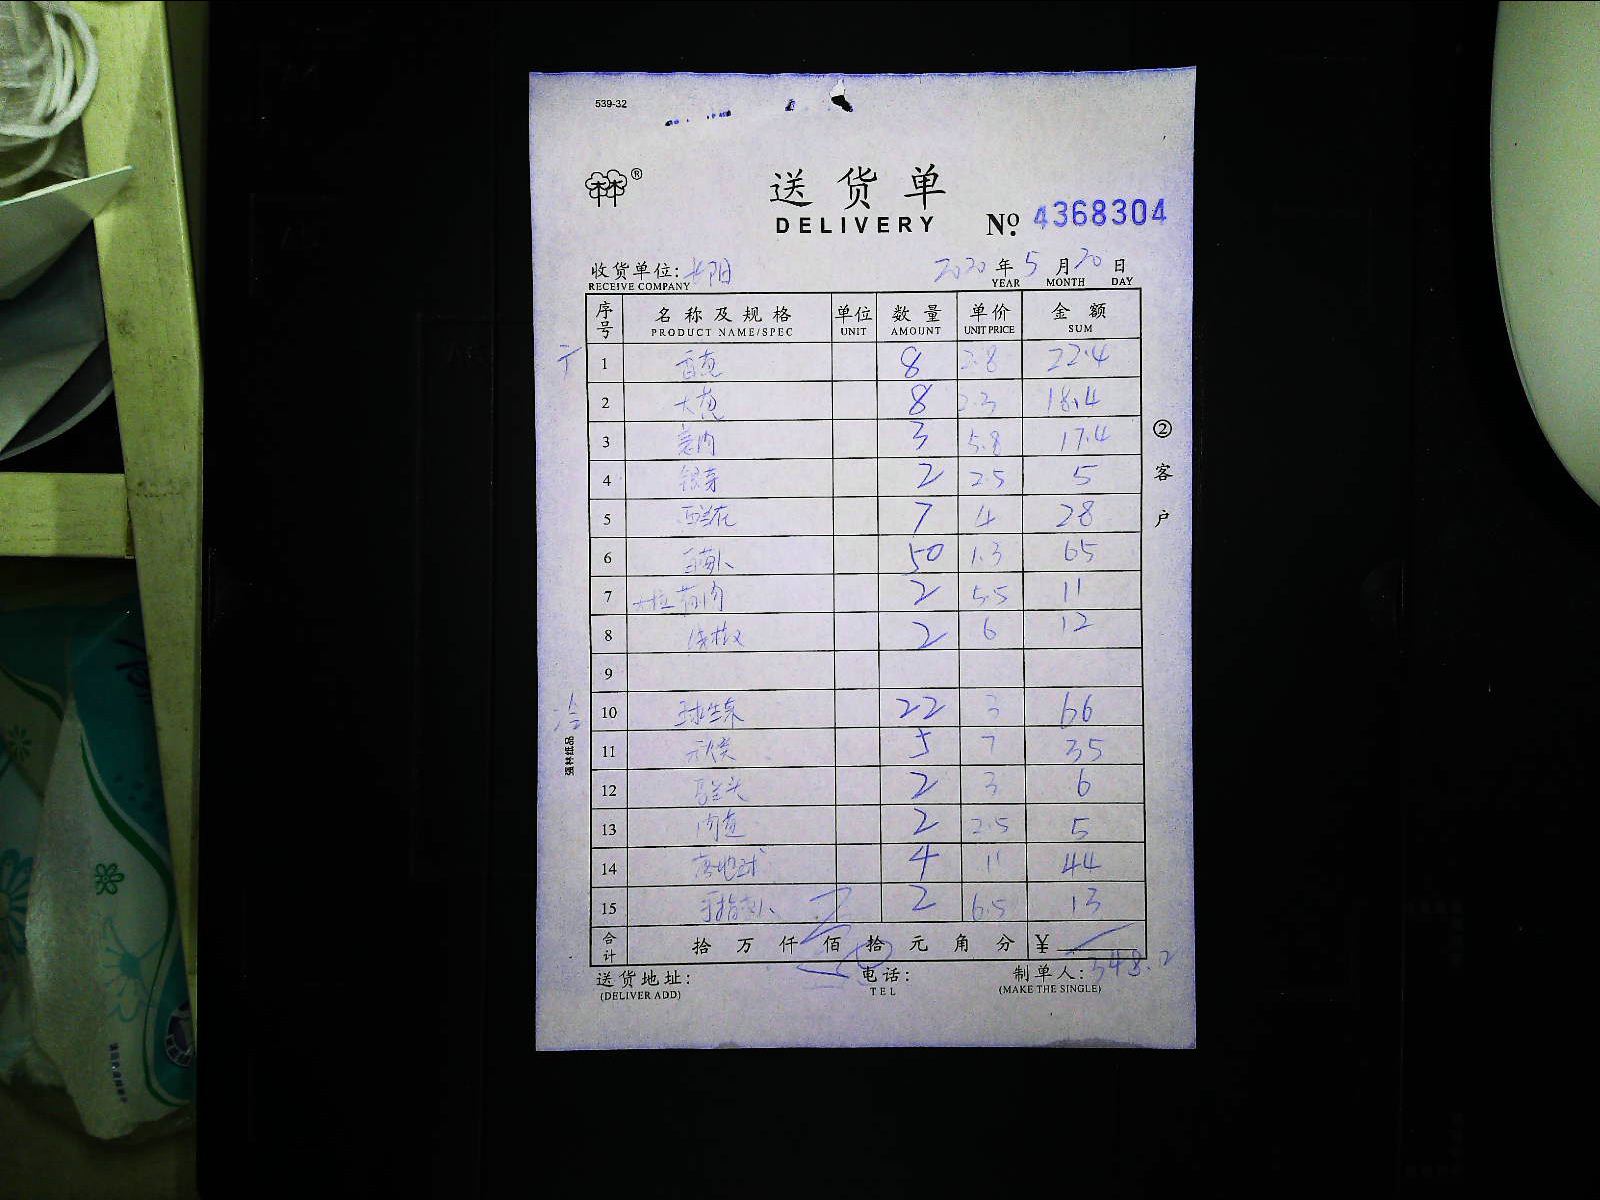 539-32
®
送货单
DELIVERY № 4368304
收货单位:
RECEIVE COMPANY
2020 年 5 月 20 日
YEAR MONTH DAY
序号 名称及规格 单位 数量 单价 金额
PRODUCT NAME/SPEC UNIT AMOUNT UNIT PRICE SUM
1 香葱 8 2.8 22.4
2 大葱 8 2.3 18.4
3 姜肉 3 5.8 17.4
4 银芽 2 2.5 5
5 西兰花 7 4 28
6 50 1.3 65
7 2 5.5 11
8 2 6 12
9
10 球生菜 22 3 66
11 5 7 35
12 2 3 6
13 2 2.5 5
14 4 11 44
15 2 6.5 13
合计 拾 万 仟 佰 拾 元 角 分 ¥
348.2
送货地址: 电话: 制单人:
(DELIVER ADD) TEL (MAKE THE SINGLE)
② 客户
强林纸品